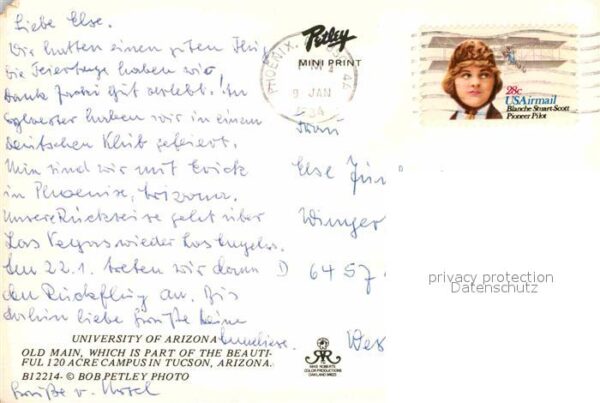 Liebe Else.
Wir hatten einen guten Flug
Die Feiertage haben wir
Danke Frohi Gut verlebt! An
Sylvester haben wir in einem
Deutschen Klub gefeiert.
Nun sind wir mit Erick
in Phoenise, Arizona.
Unsere Rückreise geht über
Las Vegas wieder Los Angelas.
Am 22.1. treten wir dann
den Rückflug an. Bis
dorhin liebe Grüße Deine
Anneliese.
Grüße v. Horst
UNIVERSITY OF ARIZONA
OLD MAIN, WHICH IS PART OF THE BEAUTI-
FUL 120 ACRE CAMPUS IN TUCSON, ARIZONA.
B12214- © BOB PETLEY PHOTO
Petley
MINI PRINT
PHOENIX,
PM
9 JAN
28c
USAirmail
Blanche Stuart Scott
Pioneer Pilot
Frau
Else
Winger
D 6457
Wes
MIKE ROBERTS
COLOR PRODUCTIONS
OAKLAND 94623
privacy protection
Datenschutz